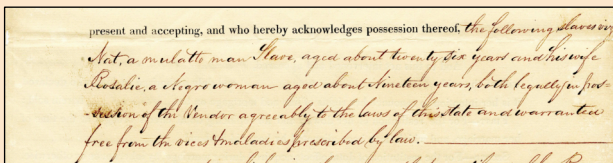 present and accepting, and who hereby acknowledges possession thereof, the following slaves viz
Nat, a mulatto man Slave, aged about twenty six years and his wife
Rosalie, a Negro woman aged about Nineteen years, both legally in pos-
-session of the Vendor agreeably to the laws of this state and warranted
free from the vices & maladies prescribed by law.